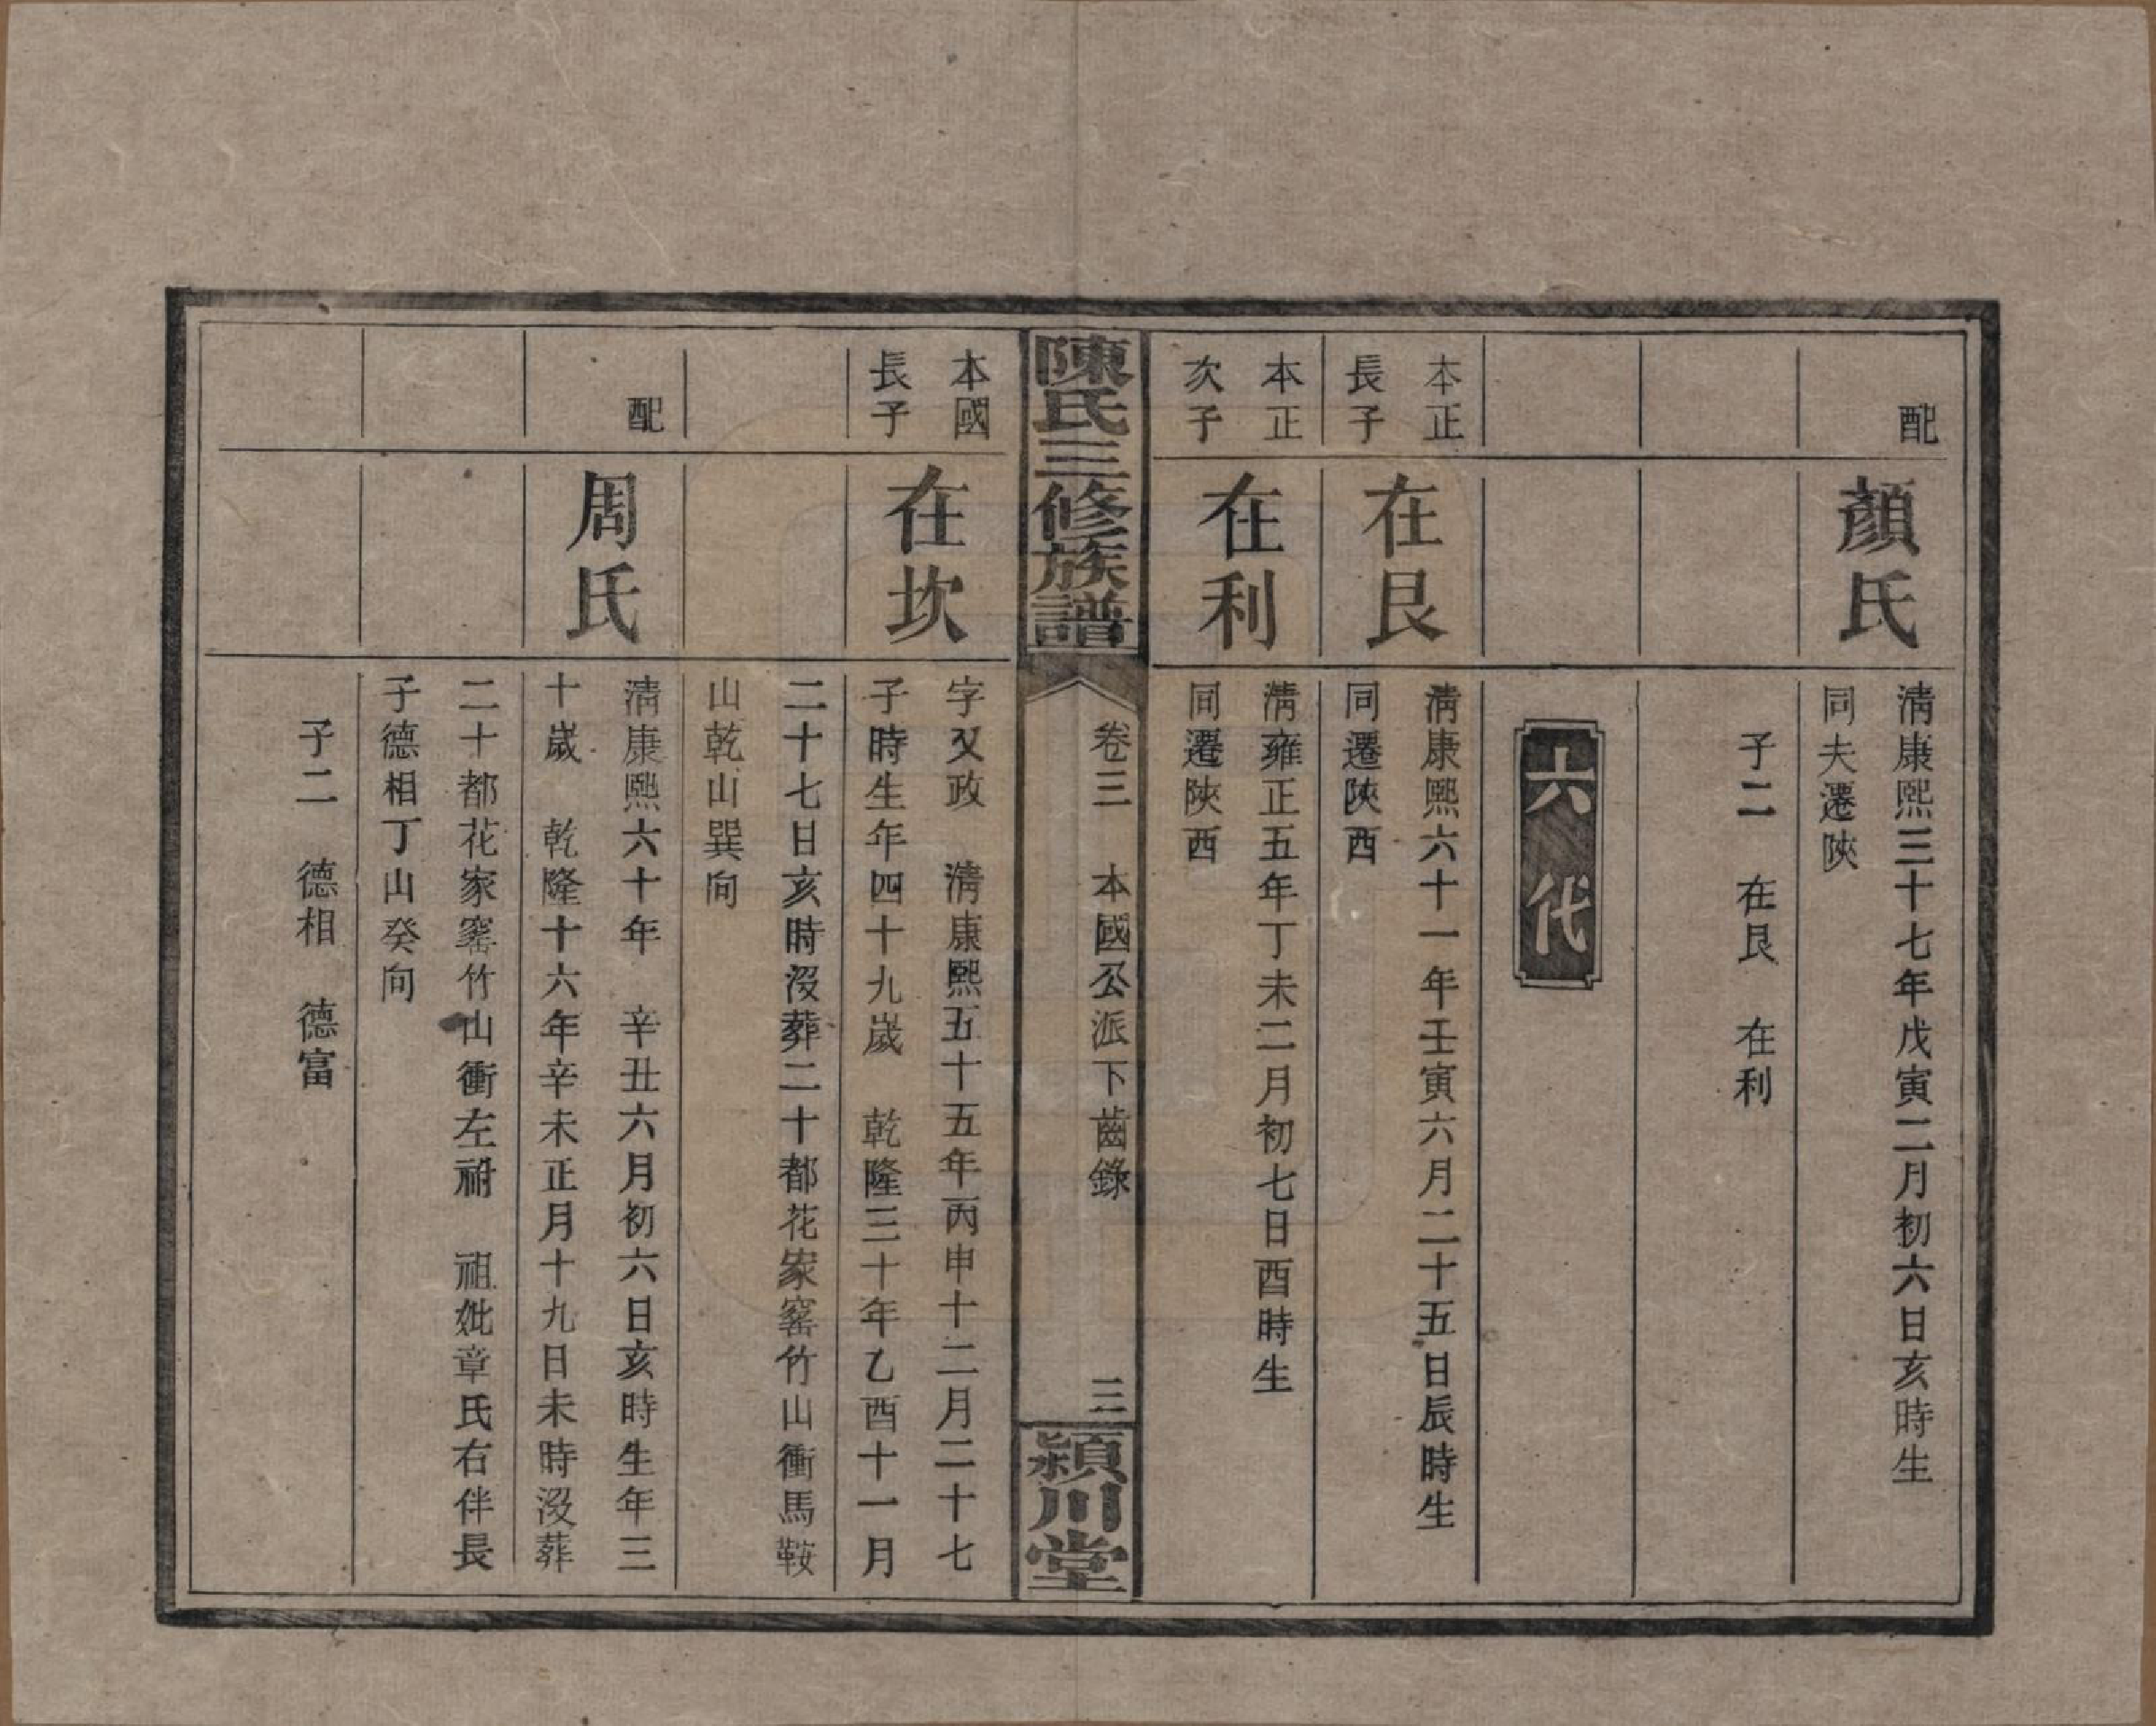 配
顏氏
淸康熙三十七年戊寅二月初六日亥時生
同夫遷陝
子二　在艮　在利
六代
本正
長子
在艮
淸康熙六十一年壬寅六月二十五日辰時生
同遷陝西
本正
次子
在利
淸雍正五年丁未二月初七日酉時生
同遷陝西
陳氏三修族譜
卷三　本國公派下齒錄
三
潁川堂
本國
長子
在坎
字又政　淸康熙五十五年丙申十二月二十七
子時生年四十九歲　乾隆三十年乙酉十一月
二十七日亥時沒葬二十都花家窰竹山衝馬鞍
山乾山巽向
配
周氏
淸康熙六十年　辛丑六月初六日亥時生年三
十歲　乾隆十六年辛未正月十九日未時沒葬
二十都花家窰竹山衝左祔　祖妣章氏右伴長
子德相丁山癸向
子二　德相　德富